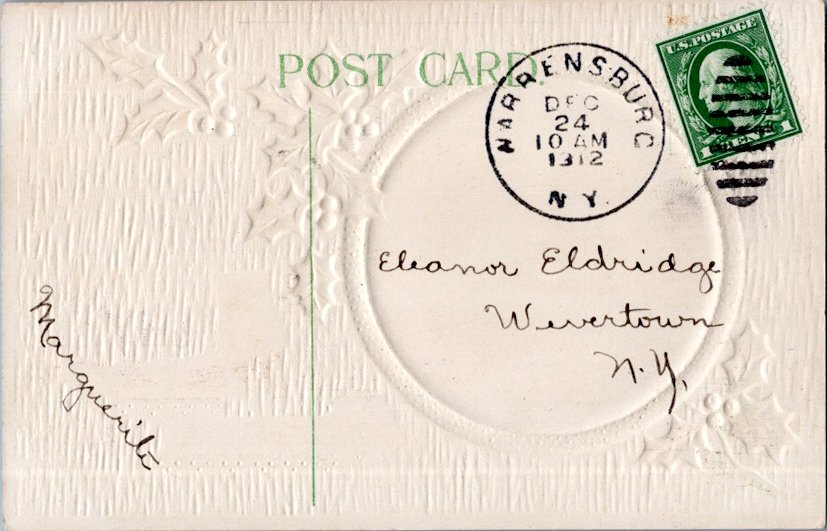 POST CARD.
WARRENSBURG
DEC
24
10 AM
1312
N.Y.
U.S. POSTAGE
1
Eleanor Eldridge
Wevertown
N.Y.
Marguerite